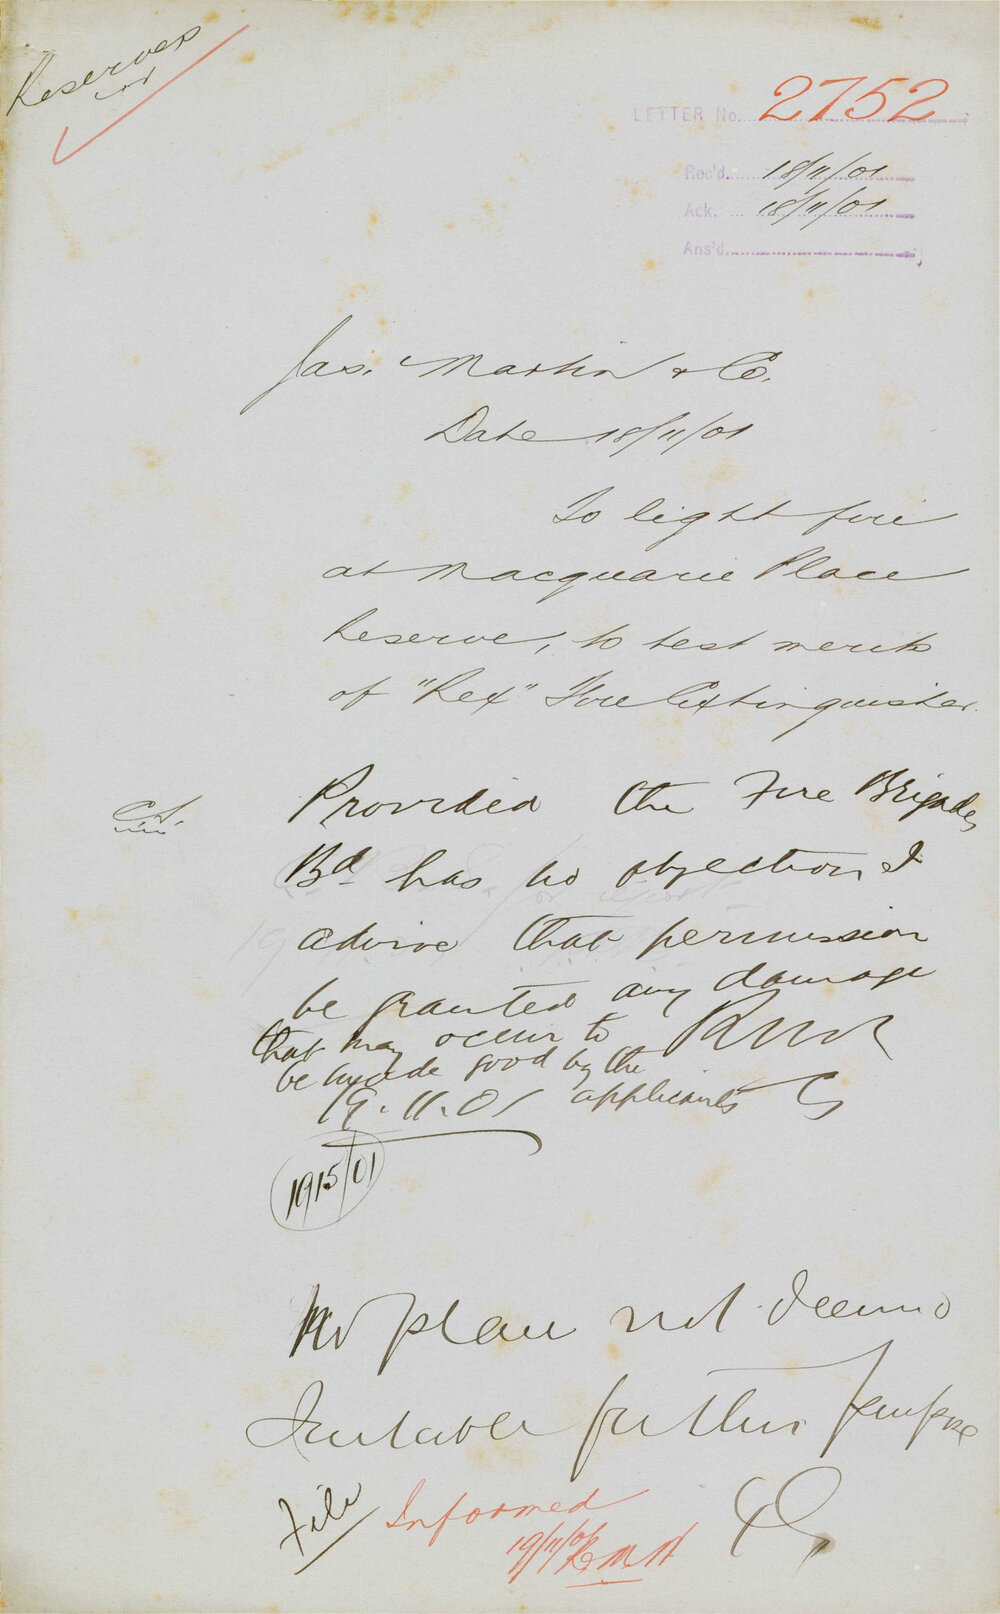 Reserves
LETTER No. 2752
Rec'd. 18/11/01
Ack. 18/11/01
Ans'd.
Jas. Martin & Co.
Date 18/11/01
To light fire
at Macquarie Place
Reserve, to test merits
of "Rex" Fire Extinguisher.
Provided the Fire Brigades
Bd. has no objection I
advise that permission
be granted any damage
that may occur to
be made good by the
applicants
19.11.01
1915/01
place not deemed
suitable for this purpose
File
Informed
19/11/01